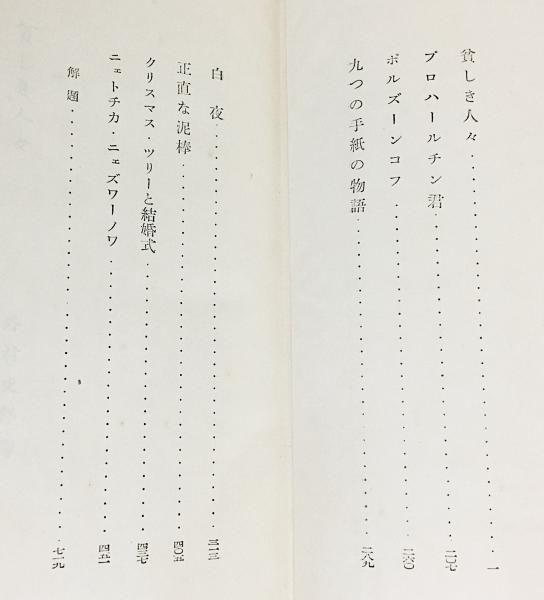 貧しき人々……………………一
プロハールチン君……………………二〇七
ポルズーンコフ……………………二六〇
九つの手紙の物語……………………二八九
白夜……………………三一三
正直な泥棒……………………四〇五
クリスマス・ツリーと結婚式……………………四三七
ニェトチカ・ニェズワーノワ……………………四五一
解題……………………七一九